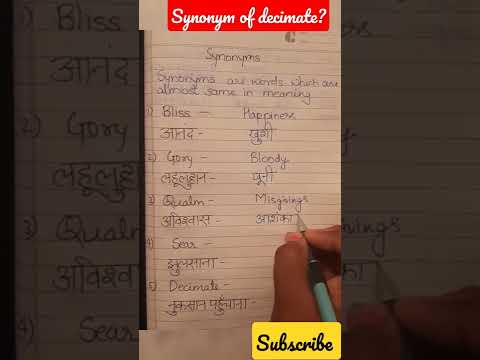 Synonym of decimate?
Synonyms
Synonyms are words which are
almost same in meaning
1) Bliss - Happiness
आनंद - खुशी
2) Gory - Bloody
लहूलुहान - खूनी
3) Qualm - Misgivings
अविश्वास - आशंका
4) Sear -
झुलसाना -
5) Decimate -
नुकसान पहुँचाना -
Subscribe